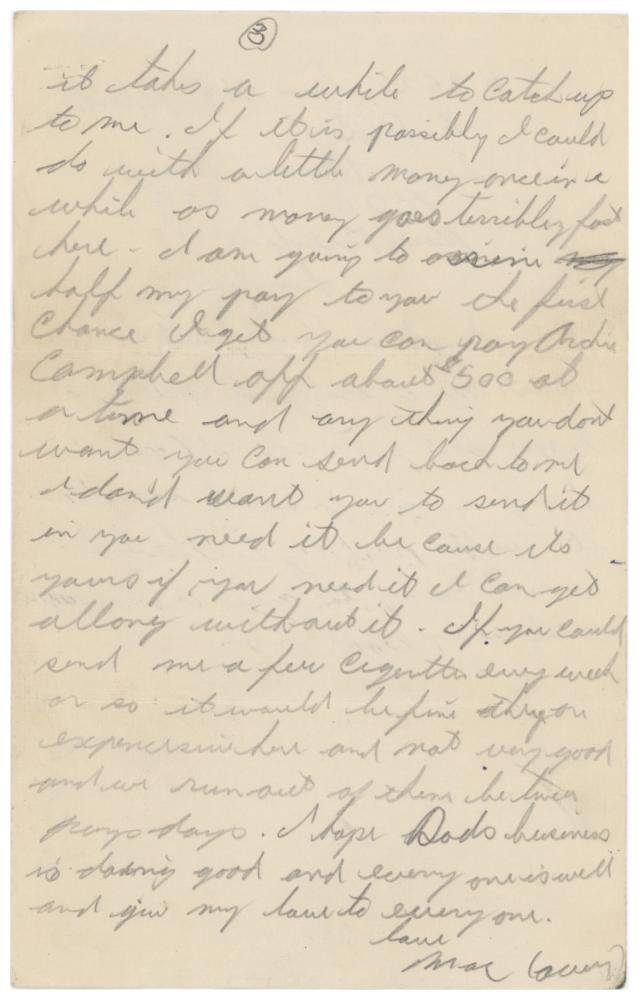 3
it takes a while to catch up
to me. If it is possibly I could
do with a little money once in a
while as money goes terribley fast
here - I am going to assine
half my pay to you the first
chance I get you can pay Archie
Campbell off about $500 at
a time and any thing you dont
want you can send back to me
I don't want you to send it
in you need it be cause its
yours if you need it I can get
allong without it. If you could
send me a few Cigerttes every week
or so it would be fine they are
expencersive here and not very good
and we run out of them between
pays days. I hope Dads business
is doaing good and every one is well
and give my love to every one.
love
Mac